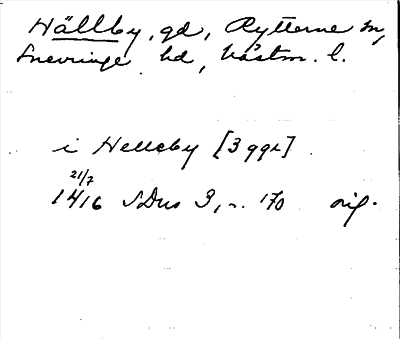 Hällby, gd, Rytterne sn,
Snevringe hd, Västm. l.
i Helleby [3 ggr]
21/7
1416 SDns 3, n. 170 orig.